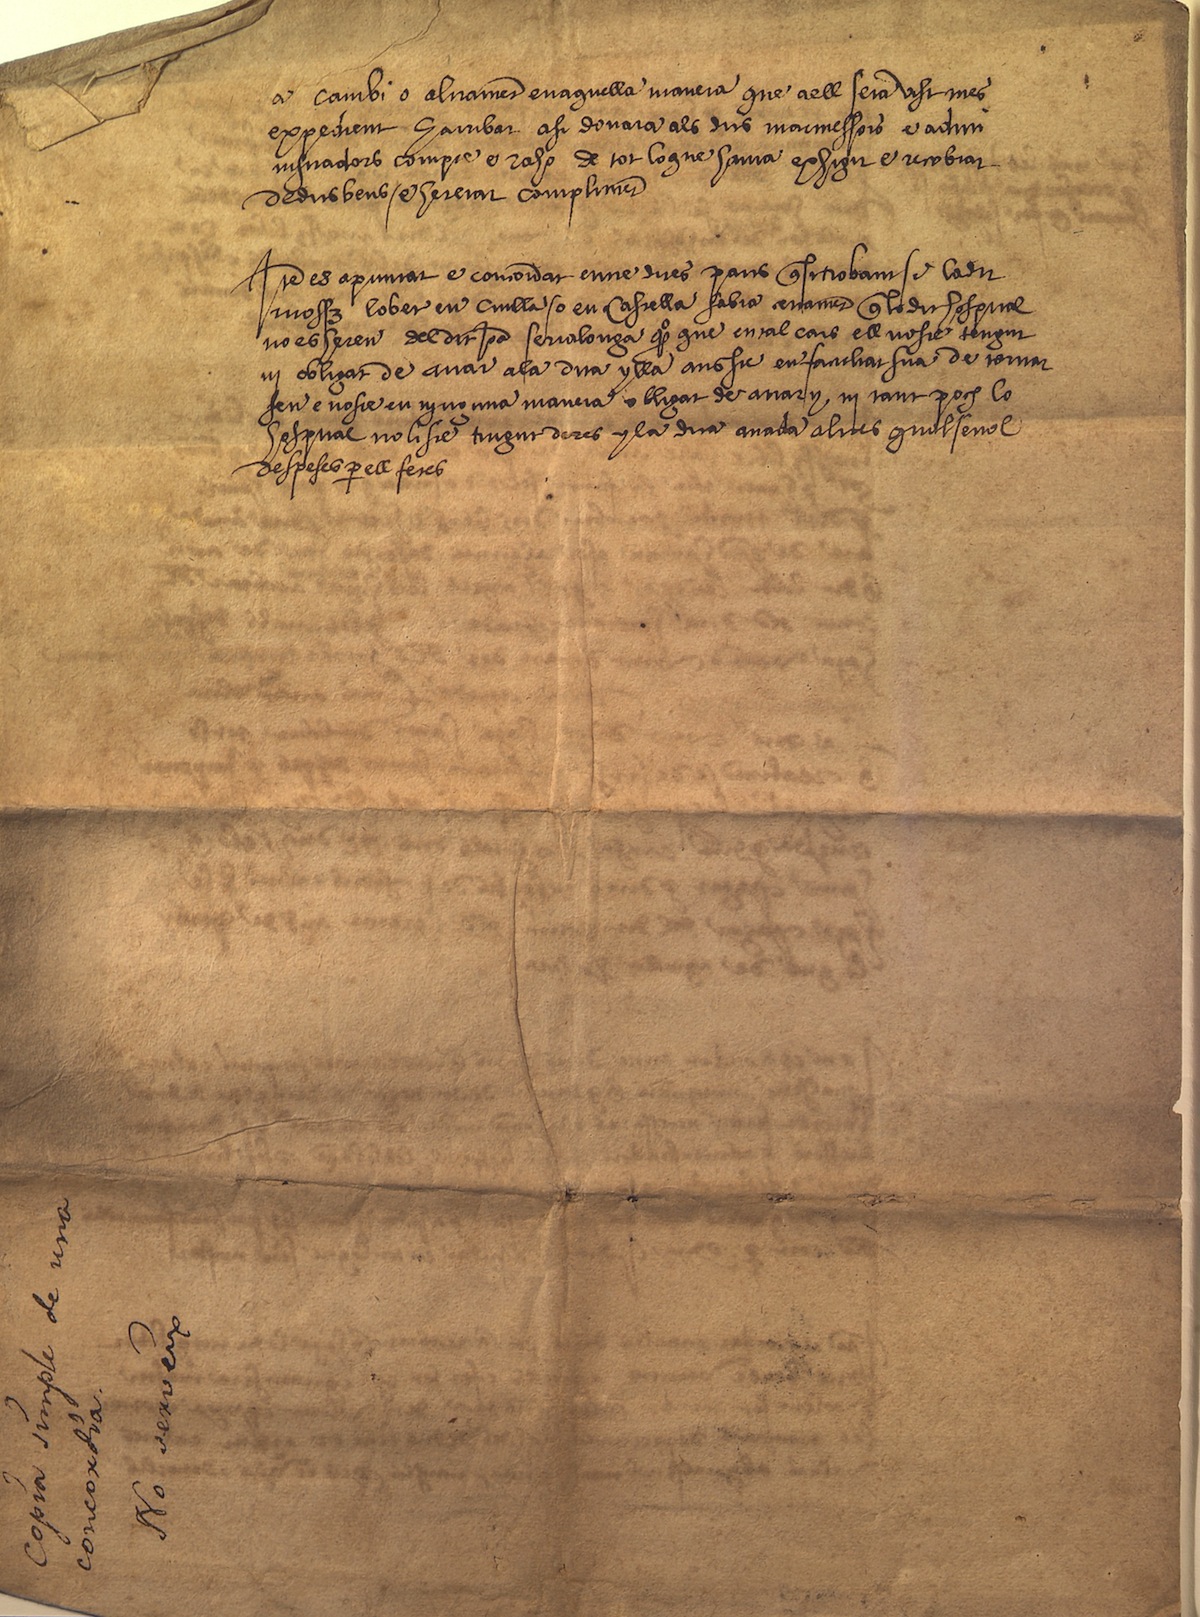 a cambi o altrament en aquella manera que a ell sera vist mes
expedient E arribat asi donara als dits marmessors e admi
nistradors compte e raho de tot lo que haura exhigit e recobrat
de dits bens / e hereitat compliment
Ite es apuntat e concordat entre dites parts q si trobant se lo dit
lober en Civilla / o en Castella sabia certament q lo dit hospital
no es hereu del dit serralonga que en tal cars ell no sie tengut
ni obligat de anar a la dita vila ans sie en facultat sua de tornar
sen e no sie en ninguna manera obligat de anar y, ni tant poch lo
hospital no li sie tengut de res y la dita anada altres qualsevol
despeses p ell fetes
Copia simple de una
concordia.
No serveix